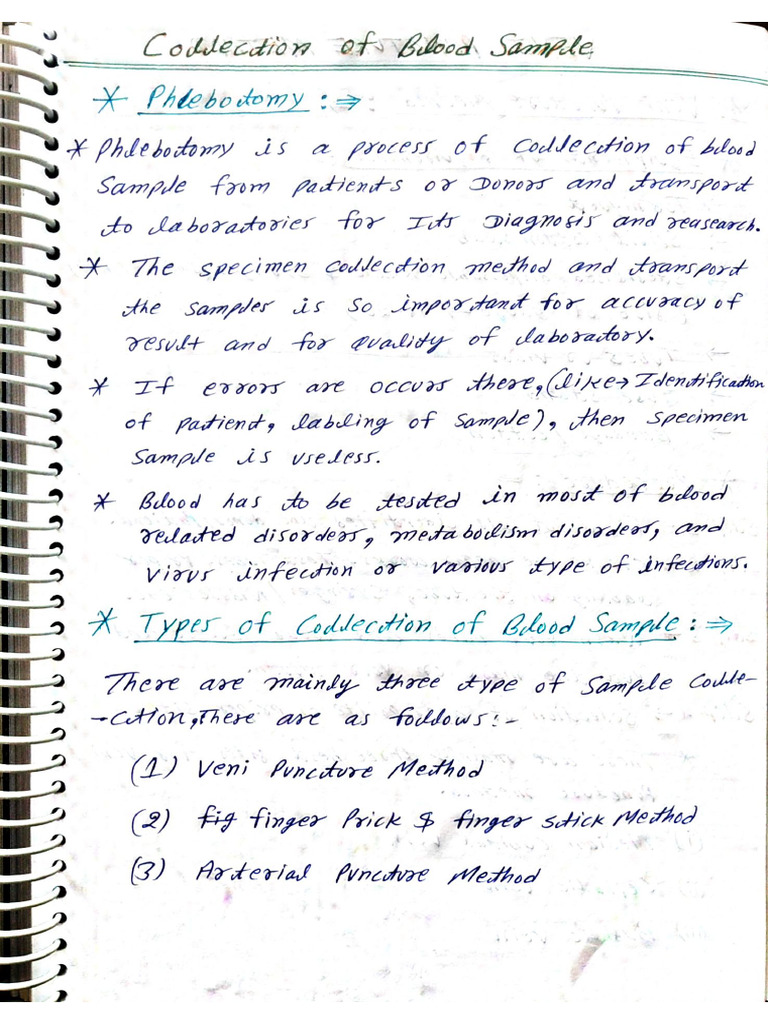 Collection of Blood Sample
* Phlebotomy :⇒
* Phlebotomy is a process of Collection of blood
Sample from patients or Donors and transport
to laboratories for Its Diagnosis and reasearch.
* The specimen collection method and transport
the samples is so important for accuracy of
result and for quality of laboratory.
* If errors are occurs there, (like→ Identification
of patient, labling of sample), then specimen
Sample is useless.
* Blood has to be tested in most of blood
related disorders, metabolism disorders, and
Virus infection or various type of infections.
* Types of Collection of Blood Sample :⇒
There are mainly three type of Sample Colle-
-ction, There are as follows:-
(1) Veni Puncture Method
(2) fig finger Prick & finger stick Method
(3) Arterial Puncture Method